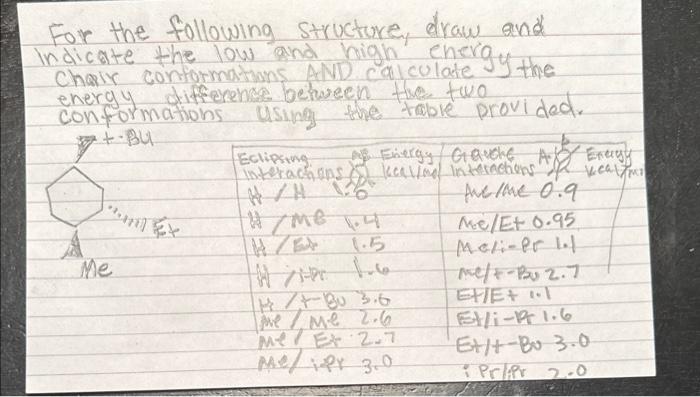 For the following structure, draw and
indicate the low and high energy
Chair conformations AND calculate the
energy difference between the two
conformations using the table provided.
t-Bu
Et
Me
Eclipsing Energy
Interactions kcal/mol
H / H 1.0
H / Me 1.4
H / Et 1.5
H / i-Pr 1.6
H / t-Bu 3.0
Me / Me 2.6
Me / Et 2.7
Me / i-Pr 3.0
Gauche A B Energy
Interactions kcal/mol
Me/Me 0.9
Me/Et 0.95
Me/i-Pr 1.1
Me/t-Bu 2.7
Et/Et 1.1
Et/i-Pr 1.6
Et/t-Bu 3.0
iPr/iPr 2.0